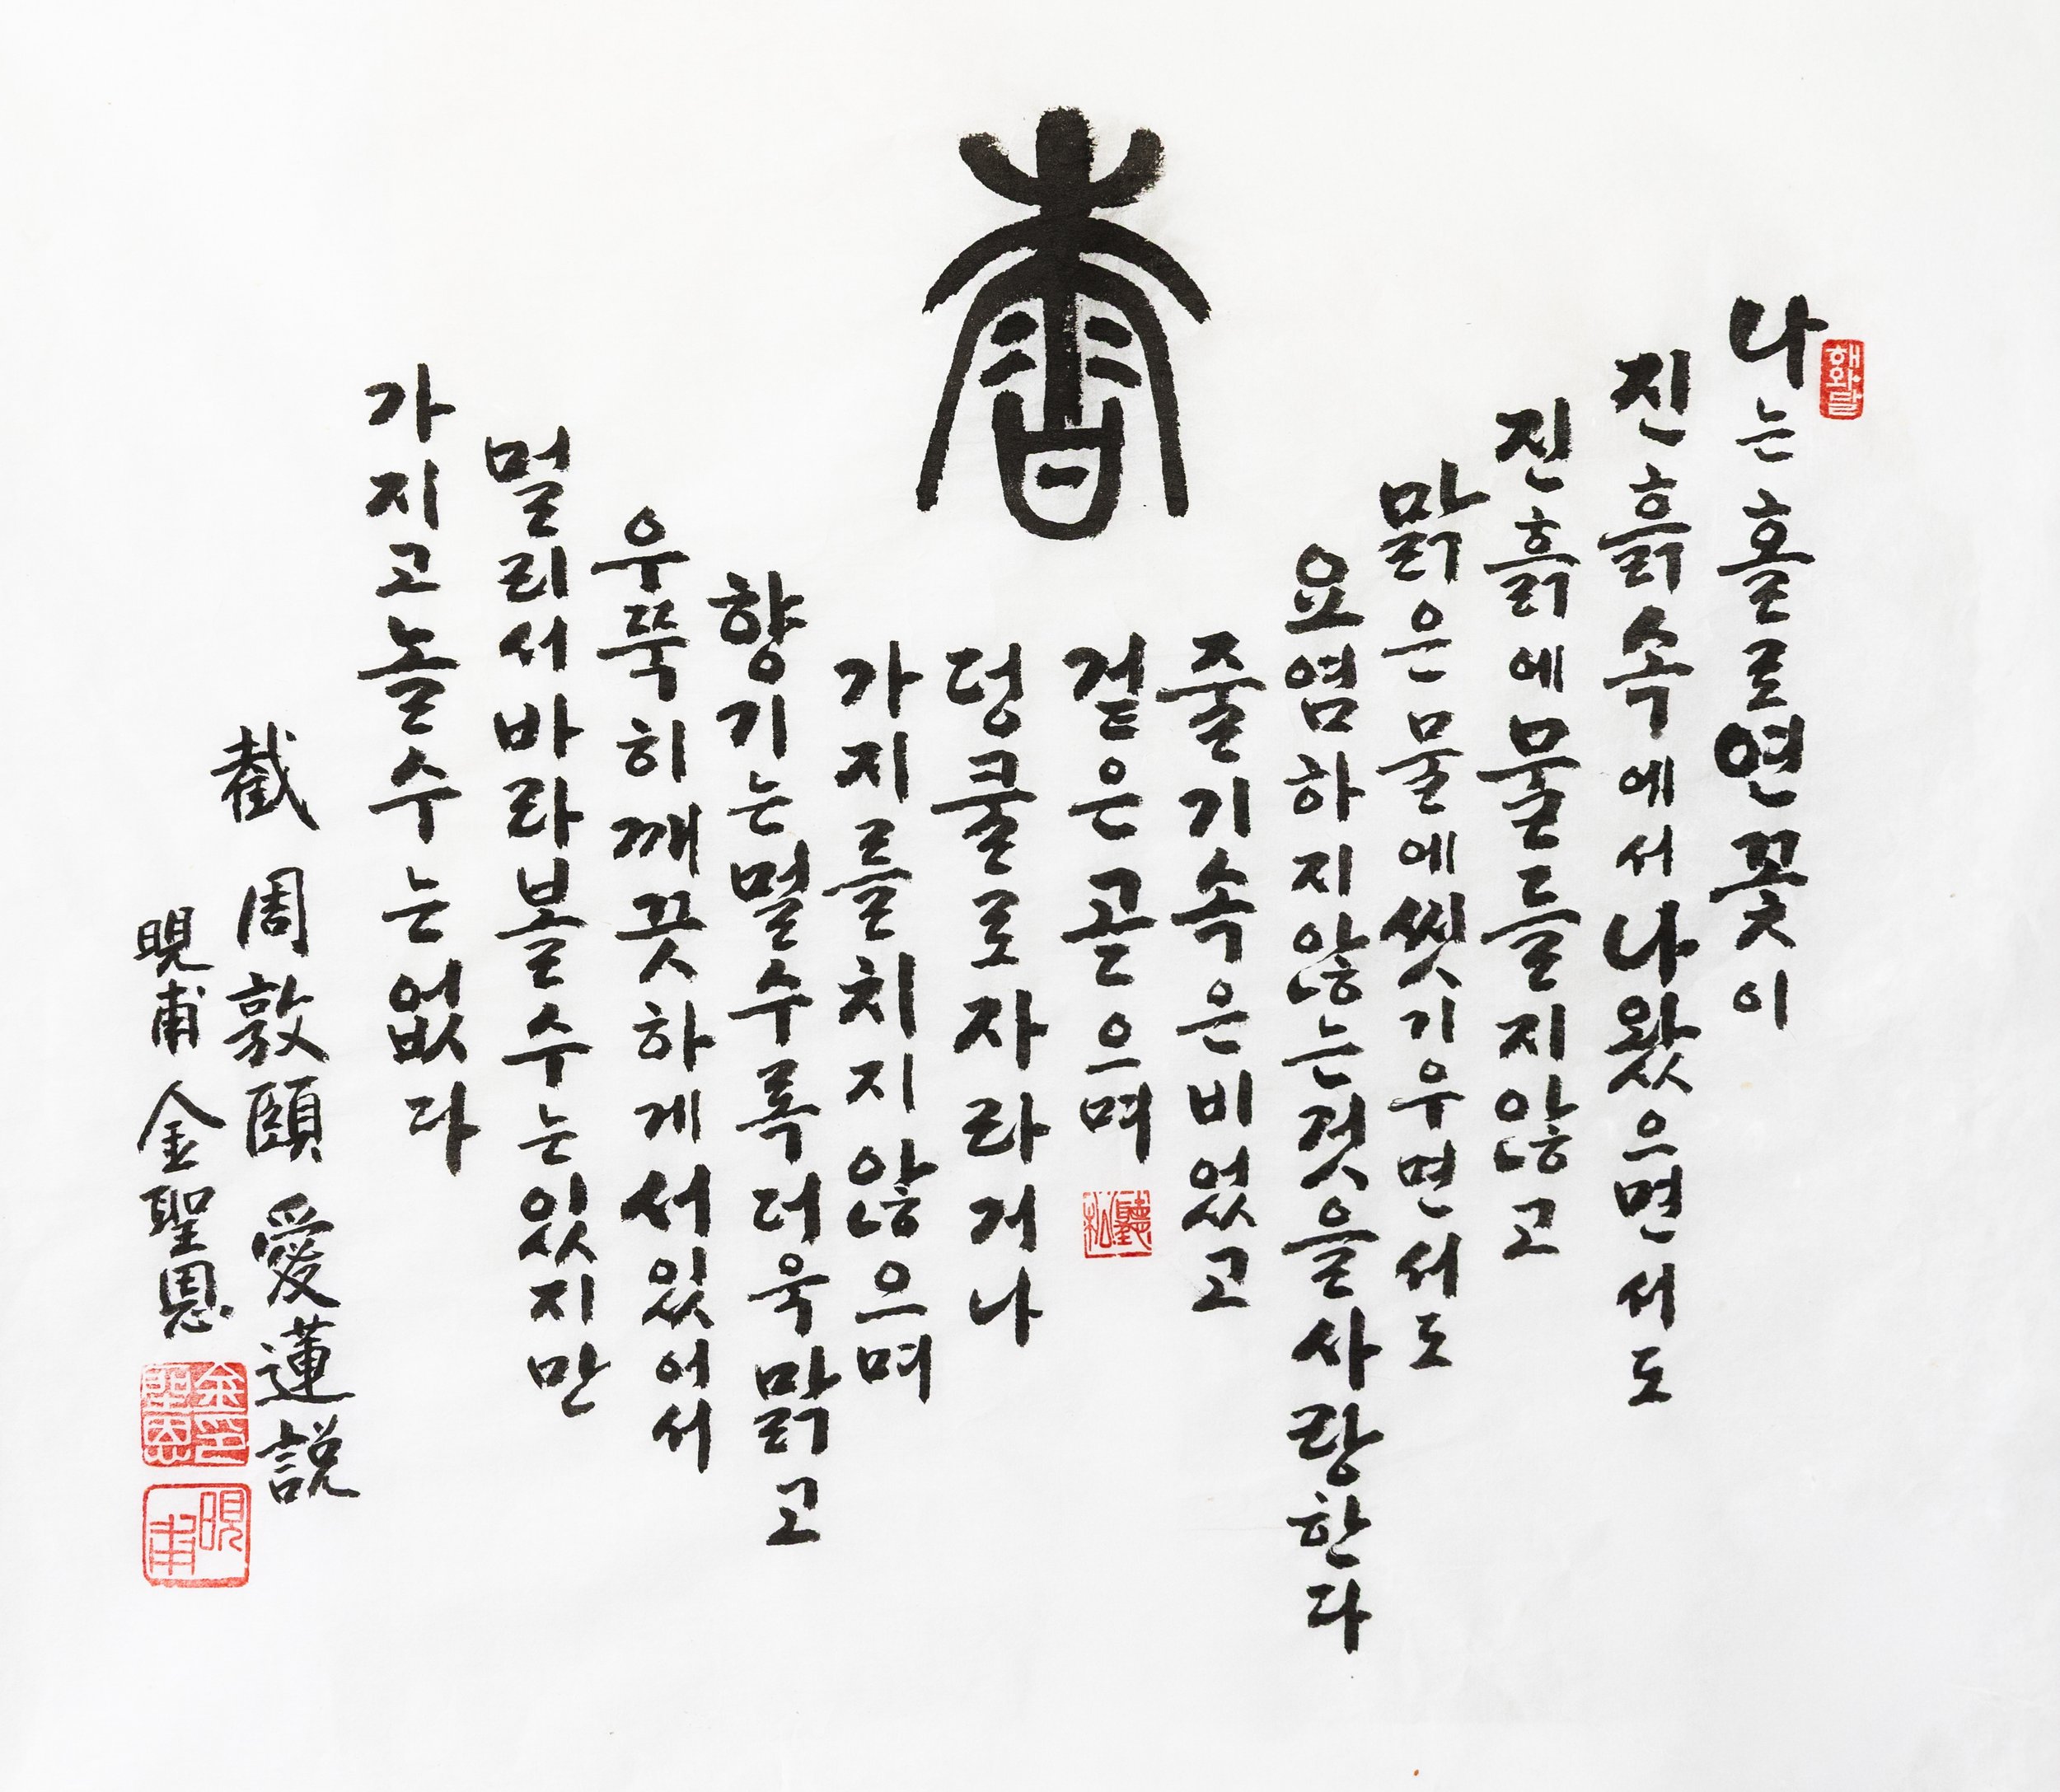 香
해와달
나는홀로연꽃이
진흙속에서나왔으면서도
진흙에물들지않고
맑은물에씻기우면서도
요염하지않는것을사랑한다
줄기속은비었고
겉은곧으며
聽松
덩쿨로자라거나
가지를치지않으며
향기는멀수록더욱맑고
우뚝히깨끗하게서있어서
멀리서바라볼수는있지만
가지고놀수는없다
截 周敦頤 愛蓮説
晛甫 金聖恩
金聖恩印
晛甫